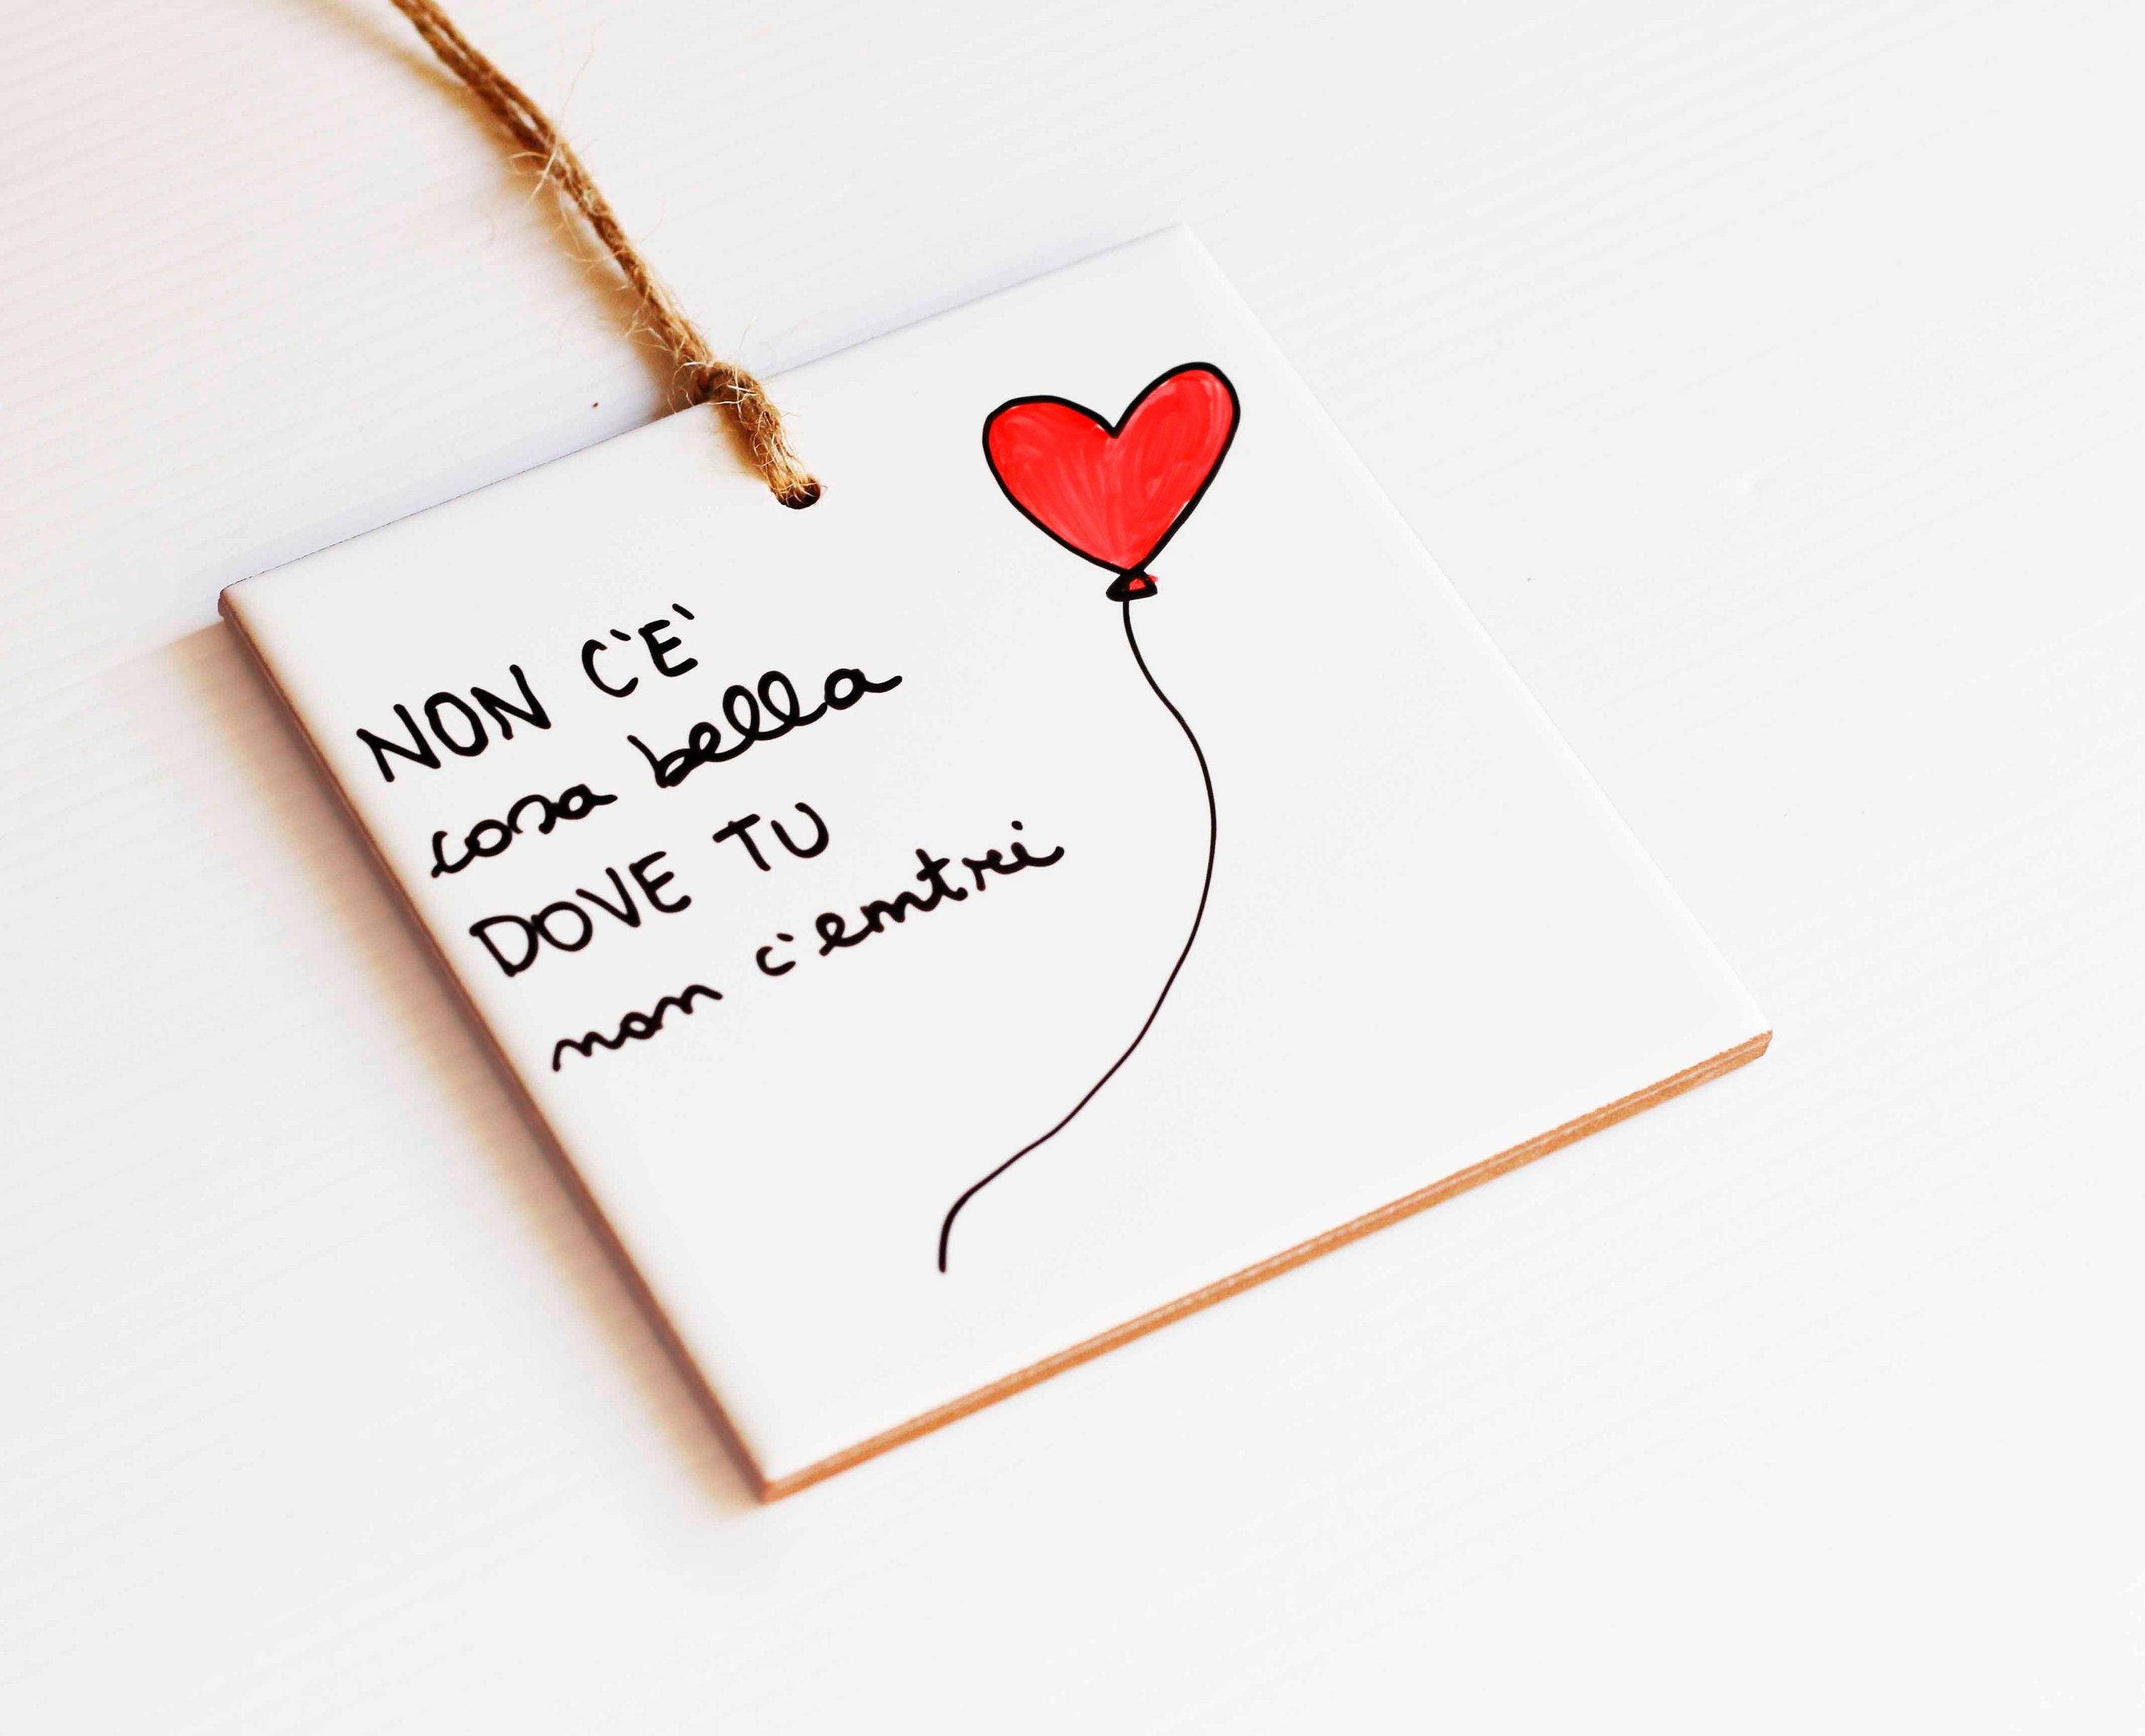 NON C'E'
cosa bella
DOVE TU
non c'entri